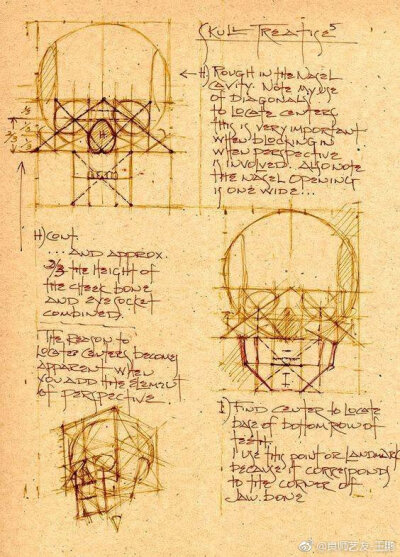 SKULL TREATISE 5
H) ROUGH IN THE NASEL
CAVITY. NOTE MY USE
OF DIAGONALS
TO LOCATE CENTERS
THIS IS VERY IMPORTANT
WHEN BLOCKING IN
WHEN PERSPECTIVE
IS INVOLVED. ALSO NOTE
THE NASEL OPENING
IS ONE WIDE...
H) CONT.
... AND APPROX.
2/3 THE HEIGHT OF
THE CHEEK BONE
AND EYE SOCKET
COMBINED.
THE REASON TO
LOCATE CENTERS BECOMES
APPARENT WHEN
YOU ADD THE ELEMENT
OF PERSPECTIVE
I) FIND CENTER TO LOCATE
BASE OF BOTTOM ROW OF
TEETH.
I USE THIS POINT OR LANDMARK
BECAUSE IT CORRESPONDS
TO THE CORNER OF
JAW BONE